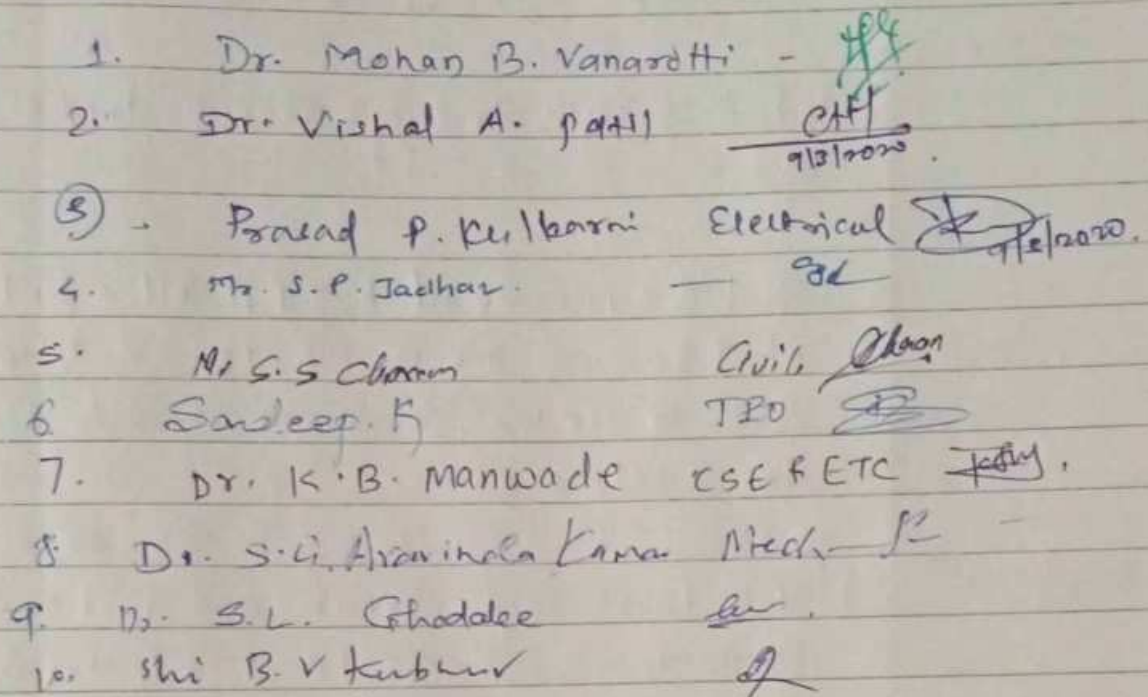 1. Dr. Mohan B. Vanarotti -
2. Dr. Vishal A. Patil
9/3/2020.
3. Prasad P. Kulkarni Electrical 9/3/2020.
4. Mr. S. P. Jadhav. —
5. Mr S. S Chavan Civil,
6. Sandeep. K TPO
7. Dr. K. B. Manwade CSE & ETC
8. Dr. S. G. Aravinda Kumar Mech
9. Dr. S. L. Ghodake
10. Shri B. V